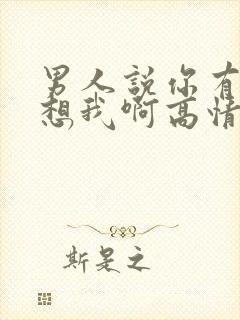 男人說你有
想我啊高情
斯是之